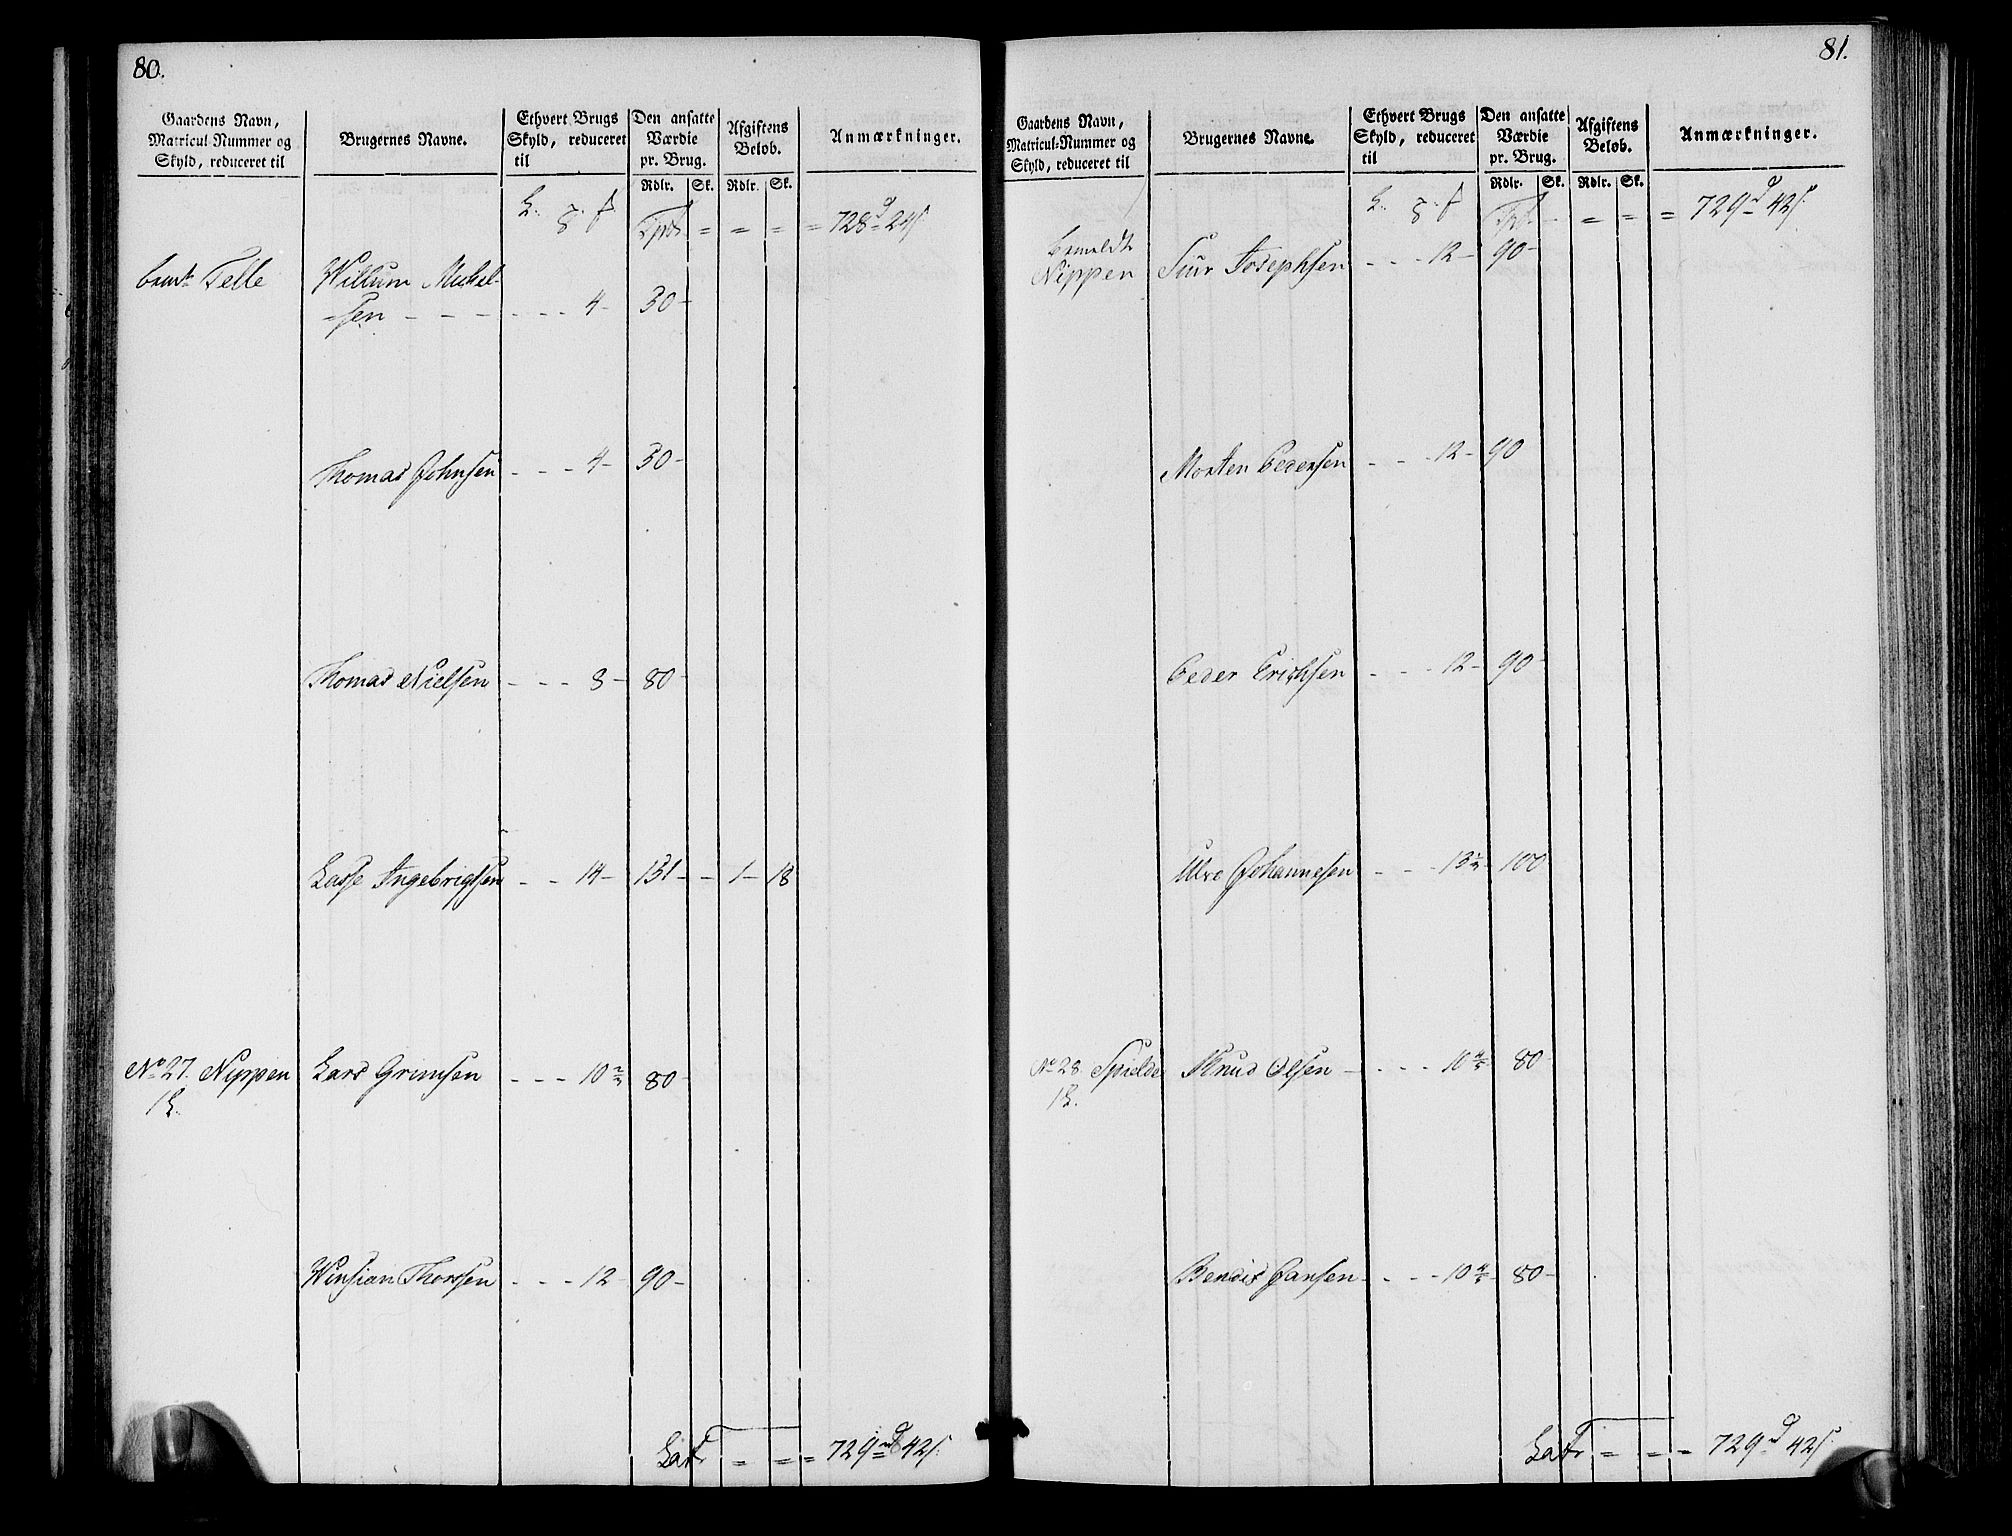 80.
Gaardens Navn, Matricul-Nummer og Skyld, reduceret til
Brugernes Navne.
Ethvert Brugs Skyld, reduceret til
Den ansatte Værdie pr. Brug.
Afgiftens Beløb.
Anmærkninger.
Rdlr. Sk. Rdlr. Sk.
728 d 24 s
Telle Willum Mickel-
-sen - - - - - - 4 - 30 -
Thomas Johnsen - - - 4 - 30 -
Thomas Nielsen - - - 8 - 80 -
Lasse Ingebrigtsen - - 14 - 131 - - 1 - 18
No 27. Nippen Lars Grimsen - - - 10 80 -
Winsian Thorssen - - - 12 - 90 -
729 42 s.
81.
Gaardens Navn, Matricul-Nummer og Skyld, reduceret til
Brugernes Navne.
Ethvert Brugs Skyld, reduceret til
Den ansatte Værdie pr. Brug.
Afgiftens Beløb.
Anmærkninger.
Rdlr. Sk. Rdlr. Sk.
729 d 42 s.
bemeldte
Nippen Siur Josephsen - - - 12 - 90 -
Morten Pedersen - - - 12 - 90
Peder Erichsen - - - 12 - 90 -
Johannesen - - - 13½ - 100
No 28. Spielde Knud Olsen - - - - 10 80 -
Jansen - - - 10 80 -
729 d 42 s.